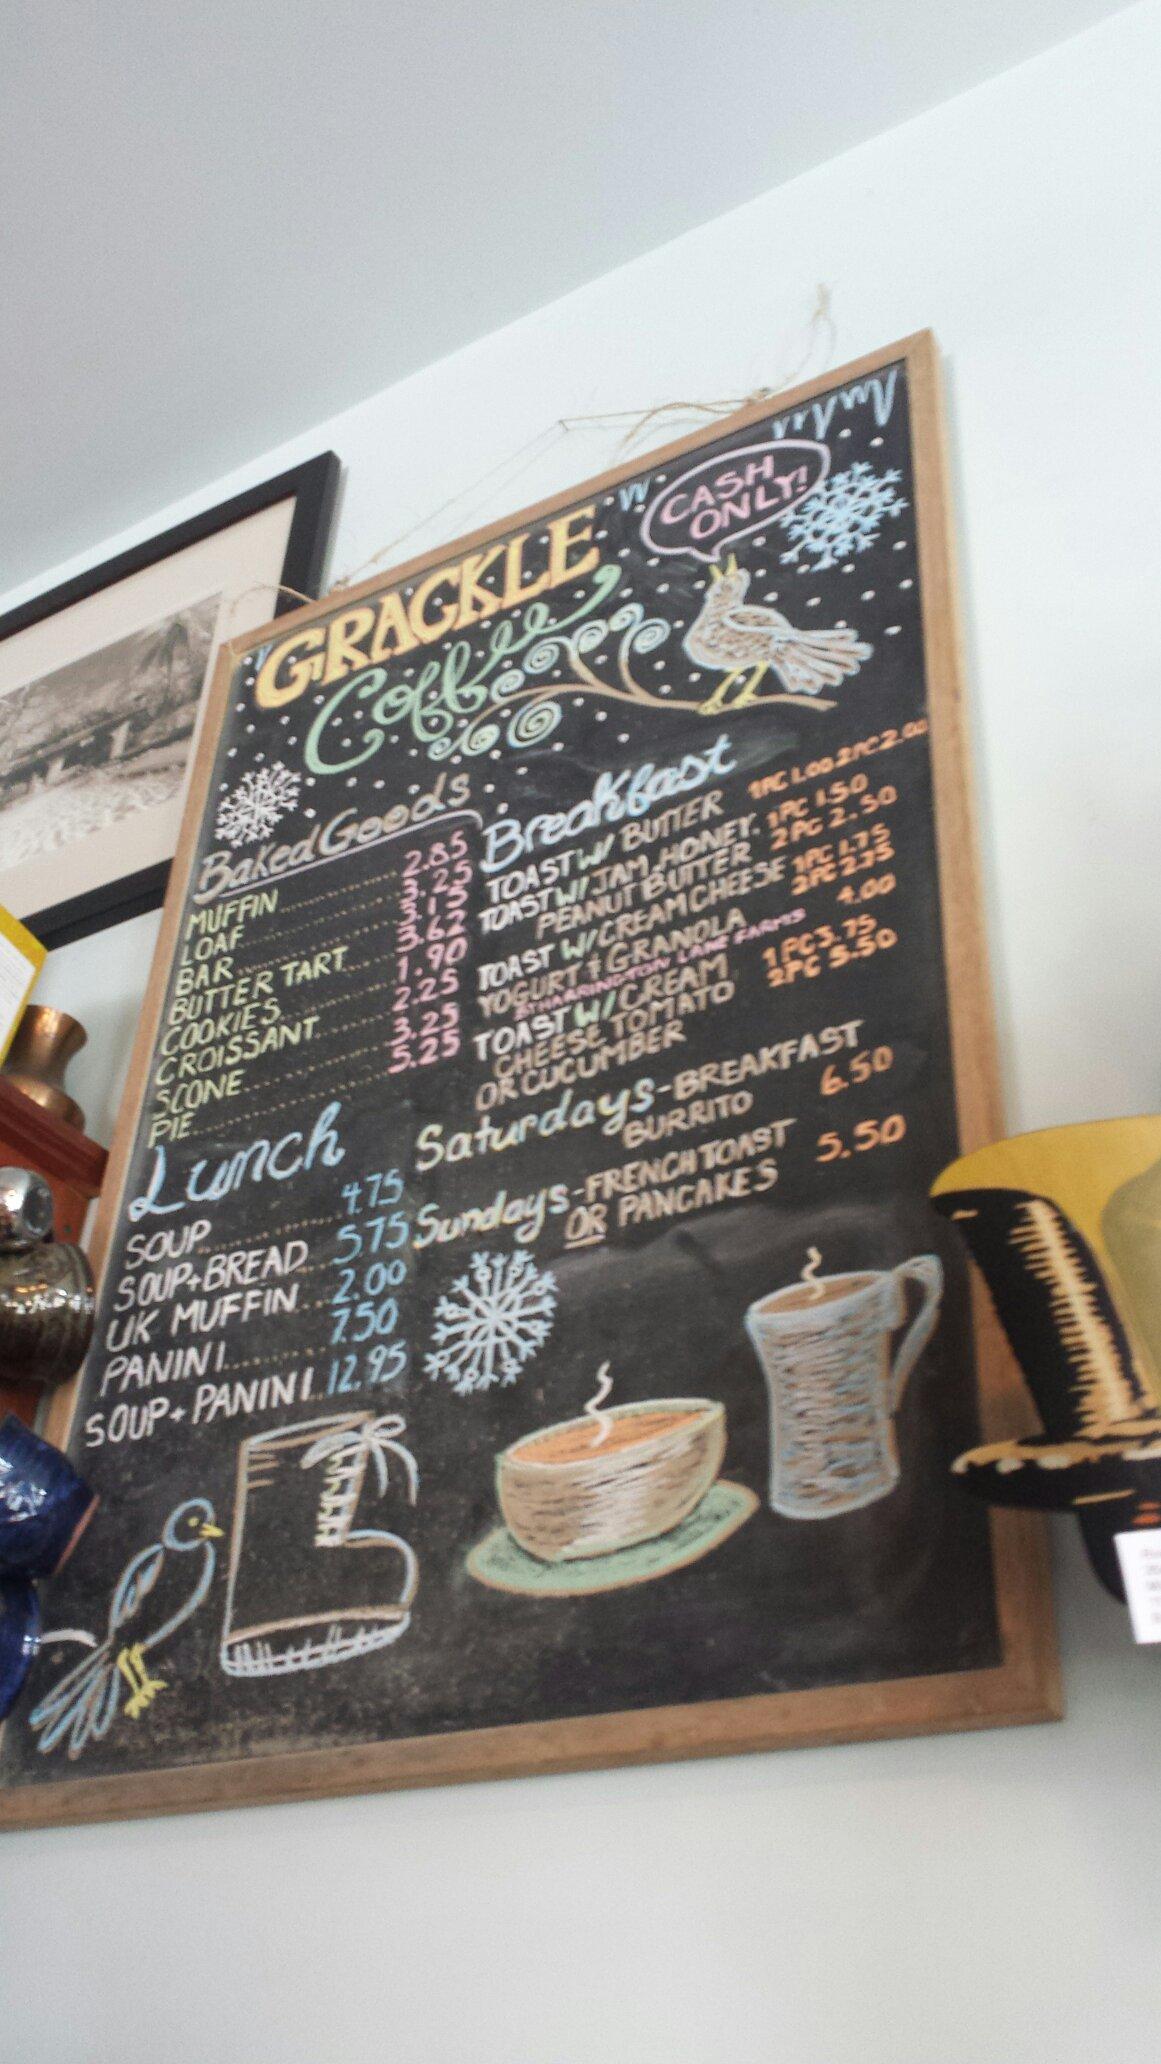 CASH
ONLY!
GRACKLE
Coffee
Baked Goods
MUFFIN 2.85
LOAF 3.25
BAR 3.15
BUTTER TART 3.62
COOKIES 1.90
CROISSANT 2.25
SCONE 3.25
PIE 5.25
Lunch
SOUP 4.75
SOUP+BREAD 5.75
UK MUFFIN 2.00
PANINI 7.50
SOUP+PANINI 12.95
Breakfast
TOAST W/ BUTTER 1PC 1.00 2PC 2.00
TOAST W/ JAM, HONEY, 1PC 1.50
PEANUT BUTTER 2PC 2.50
TOAST W/ CREAM CHEESE 1PC 1.75
2PC 2.75
YOGURT & GRANOLA 4.00
BY HARRINGTON LANE FARMS
TOAST W/ CREAM 1PC 3.75
CHEESE, TOMATO 2PC 5.50
OR CUCUMBER
Saturdays-BREAKFAST
BURRITO 6.50
Sundays-FRENCH TOAST 5.50
OR PANCAKES